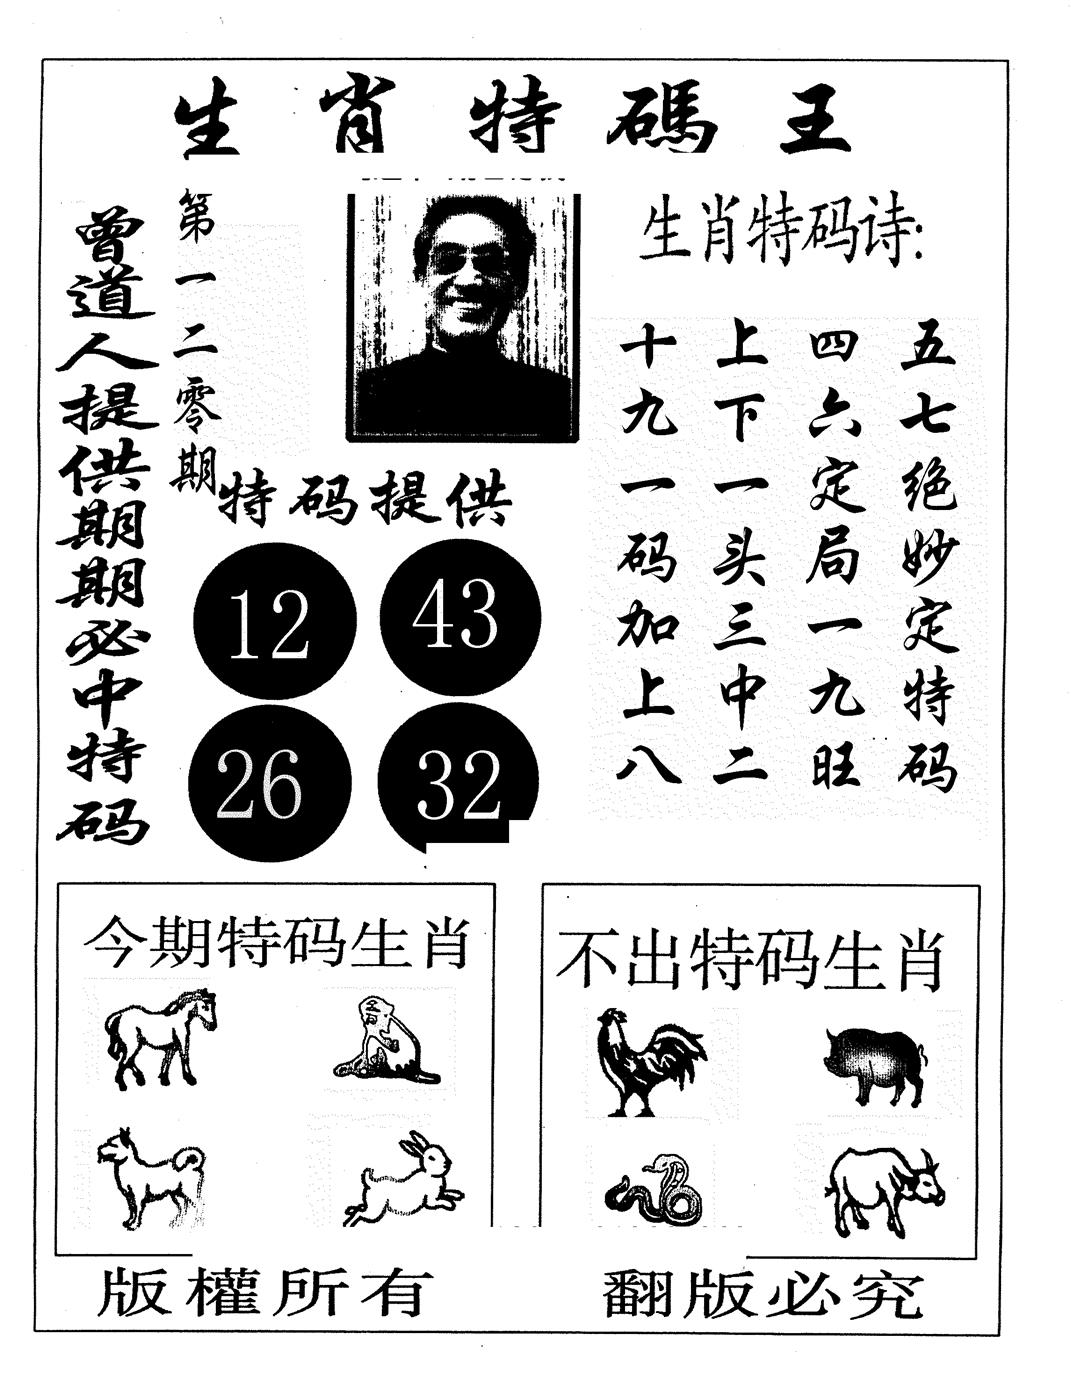 生肖特碼王
曾道人提供期期必中特码
第一二零期
生肖特码诗:
五七绝妙定特码
四六定局一九旺
上下一头三中二
十九一码加上八
特码提供
12
43
26
32
今期特码生肖
不出特码生肖
版權所有
翻版必究